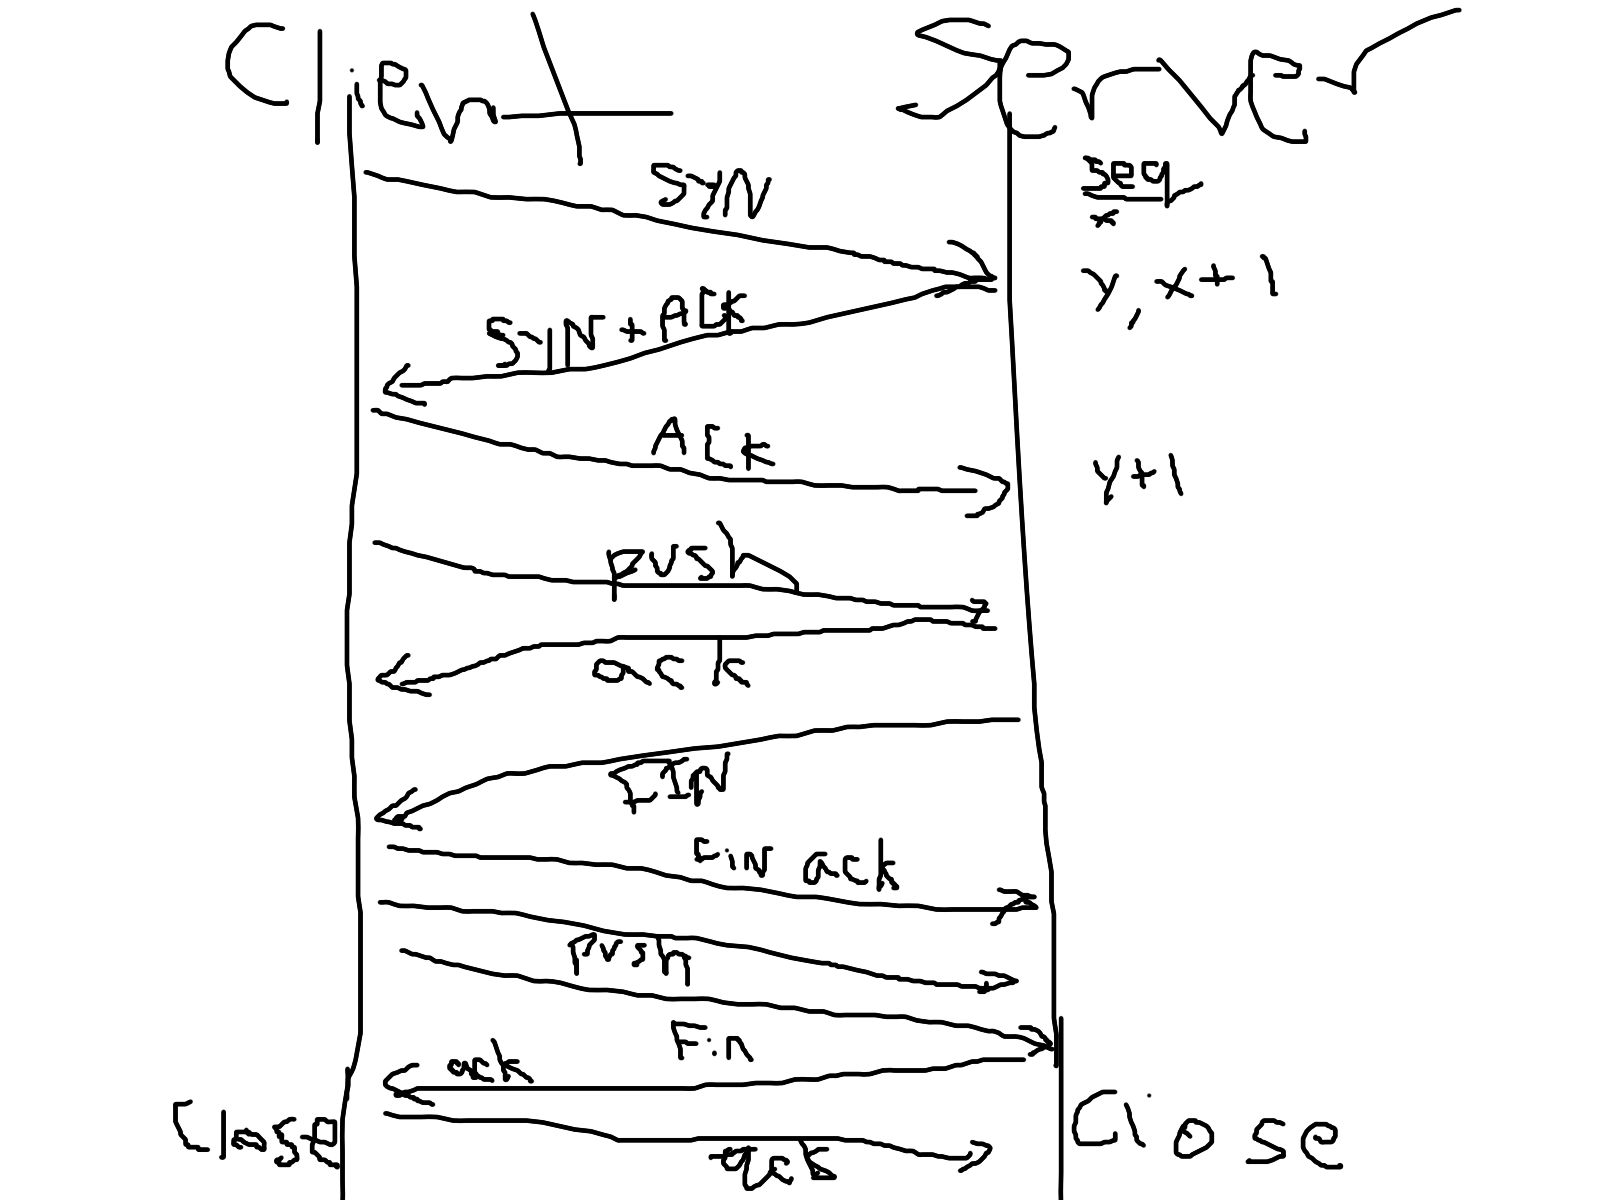 Client Server
SYN
seq
x
SYN + ACK
y, x+1
ACK
y+1
push
ack
FIN
Fin ack
push
Fin
ack
Close Close
ack